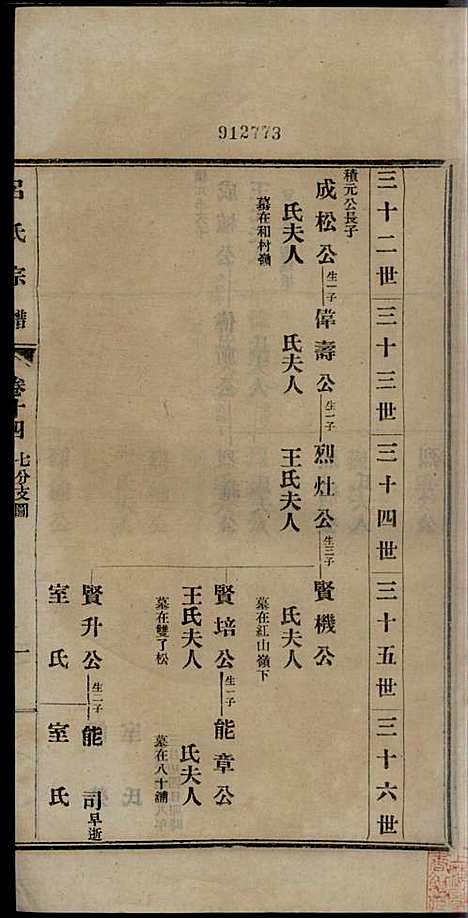 912773
三十二世
三十三世
三十四世
三十五世
三十六世
積元公長子
成松公生一子
偉壽公生一子
烈灶公生三子
賢機公
氏夫人
墓在和村嶺
氏夫人
王氏夫人
氏夫人
墓在紅山嶺下
賢培公生一子
能章公
王氏夫人
墓在雙了松
氏夫人
墓在八十鋪
賢升公生二子
能司早逝
室氏
室氏
呂氏宗譜
卷十四
七分支圖
一